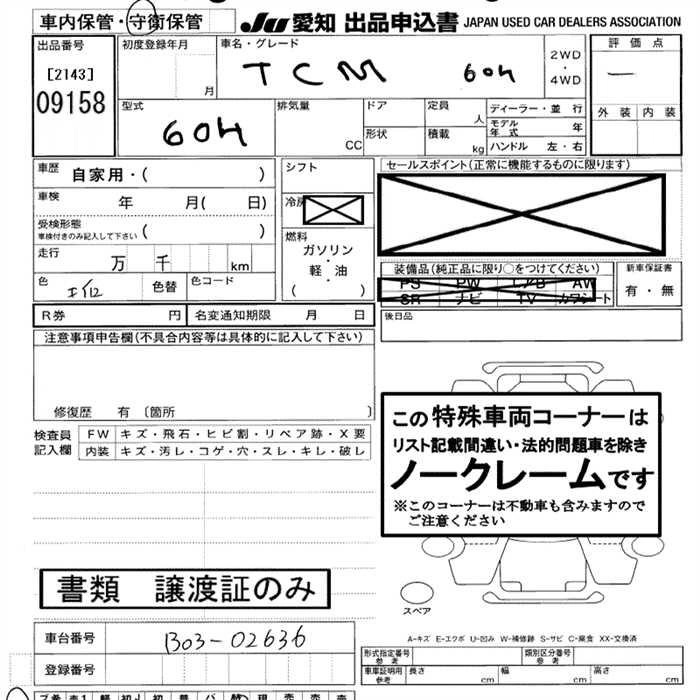 車内保管・守衛保管
JU 愛知 出品申込書 JAPAN USED CAR DEALERS ASSOCIATION
出品番号
[2143]
09158
初度登録年月
月
車名・グレード
TCM 604
2WD
・
4WD
評価点
一
外装 内装
型式
604
排気量
CC
ドア
形状
定員
人
積載
kg
ディーラー・並行
モデル年式 年
ハンドル 左・右
車歴 自家用・( )
車検 年 月( 日)
受検形態
車検付きのみ記入して下さい ( )
走行 万 千 km
色 色替 色コード
シフト
冷房
燃料
ガソリン
・
軽・油
( )
セールスポイント(正常に機能するものに限ります)
装備品(純正品に限り○をつけてください)
PS PW エアB AW
SR ナビ TV カワシート
新車保証書
有・無
後日品
R券 円 名変通知期限 月 日
注意事項申告欄(不具合内容等は具体的に記入して下さい)
修復歴 有 〔箇所 〕
検査員
記入欄
FW キズ・飛石・ヒビ割・リペア跡・X要
内装 キズ・汚レ・コゲ・穴・スレ・キレ・破レ
この特殊車両コーナーは
リスト記載間違い・法的問題車を除き
ノークレームです
※このコーナーは不動車も含みますので
ご注意ください
書類 譲渡証のみ
スペア
A-キズ E-エクボ U-凹み W-補修跡 S-サビ C-腐食 XX-交換済
車台番号 B03-02636
登録番号
形式指定番号
参考
類別区分番号
参考
車庫証明用
参考
長さ cm 幅 cm 高さ cm